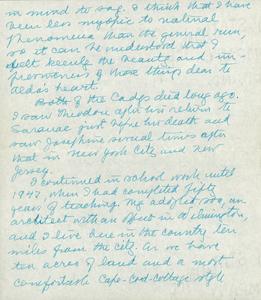 in mind to say. I think that I have
been less myopic to natural
Phenomena than the general run,
so it can be understood that I
felt keenly the beauty and im-
pressiveness of those things dear to
Aldo's heart.
Both of the Cadys died long ago.
I saw Theodore after his return to
Saranac just before his death and
saw Josephine several times after
that in New York City and New
Jersey.
I continued in school work until
1947 when I had completed fifty
years of teaching. My adopted son, an
architect with an office in Wilmington,
and I live here in the country ten
miles from the city. As we have
ten acres of land and a most
comfortable Cape-Cod-Cottage style